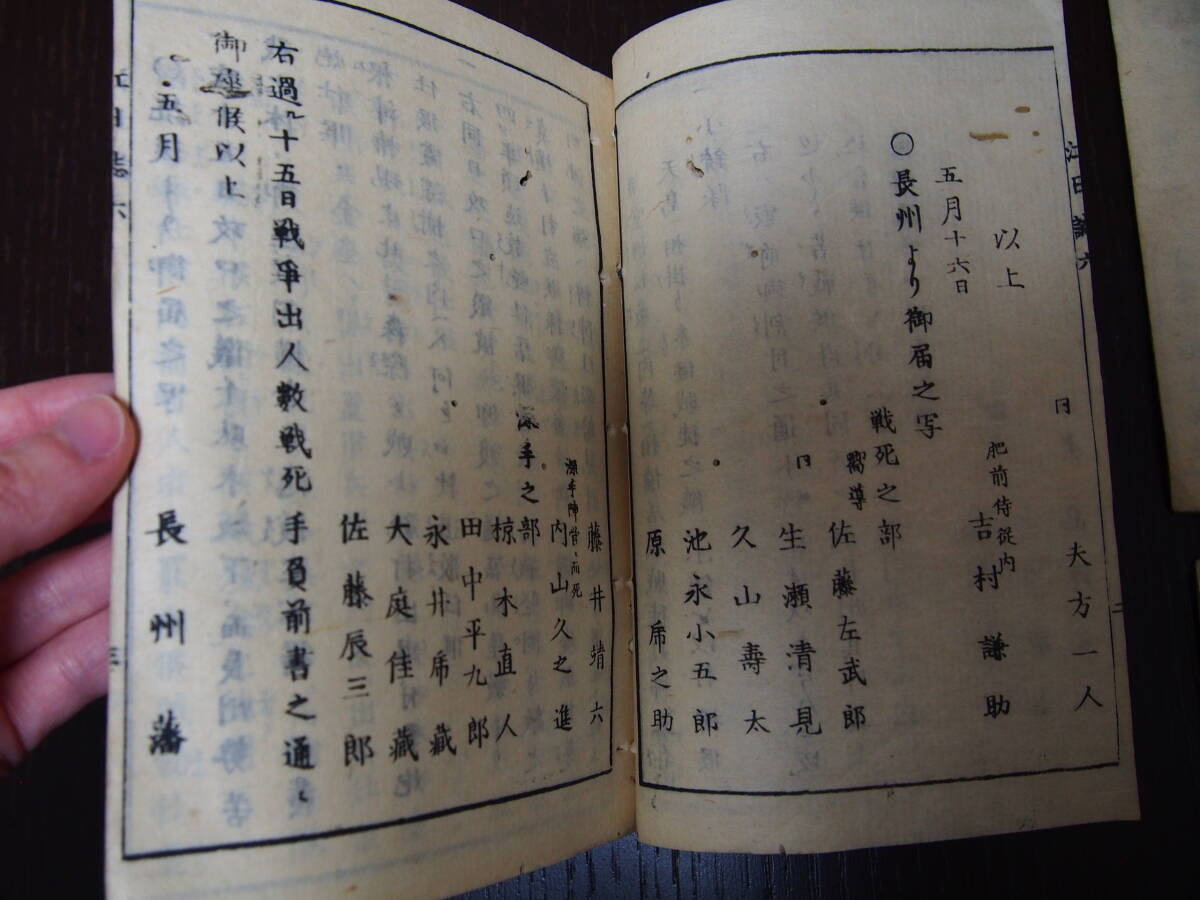 江日誌六
二
同 夫方一人
以上
肥前侍従内
吉村謙助
五月十六日
○長州より御届之写
戦死之部
嚮導 佐藤左武郎
同 生瀬清見
久山壽太
池永小五郎
原乕之助
藤井靖六
深手陣営ニ而死
内山久之進
深手之部
椋木直人
田中平九郎
永井乕藏
大庭佳藏
佐藤辰三郎
右過ル十五日戦争出人数戦死手負前書之通
御座候以上
五月 長州藩
江日誌六
三